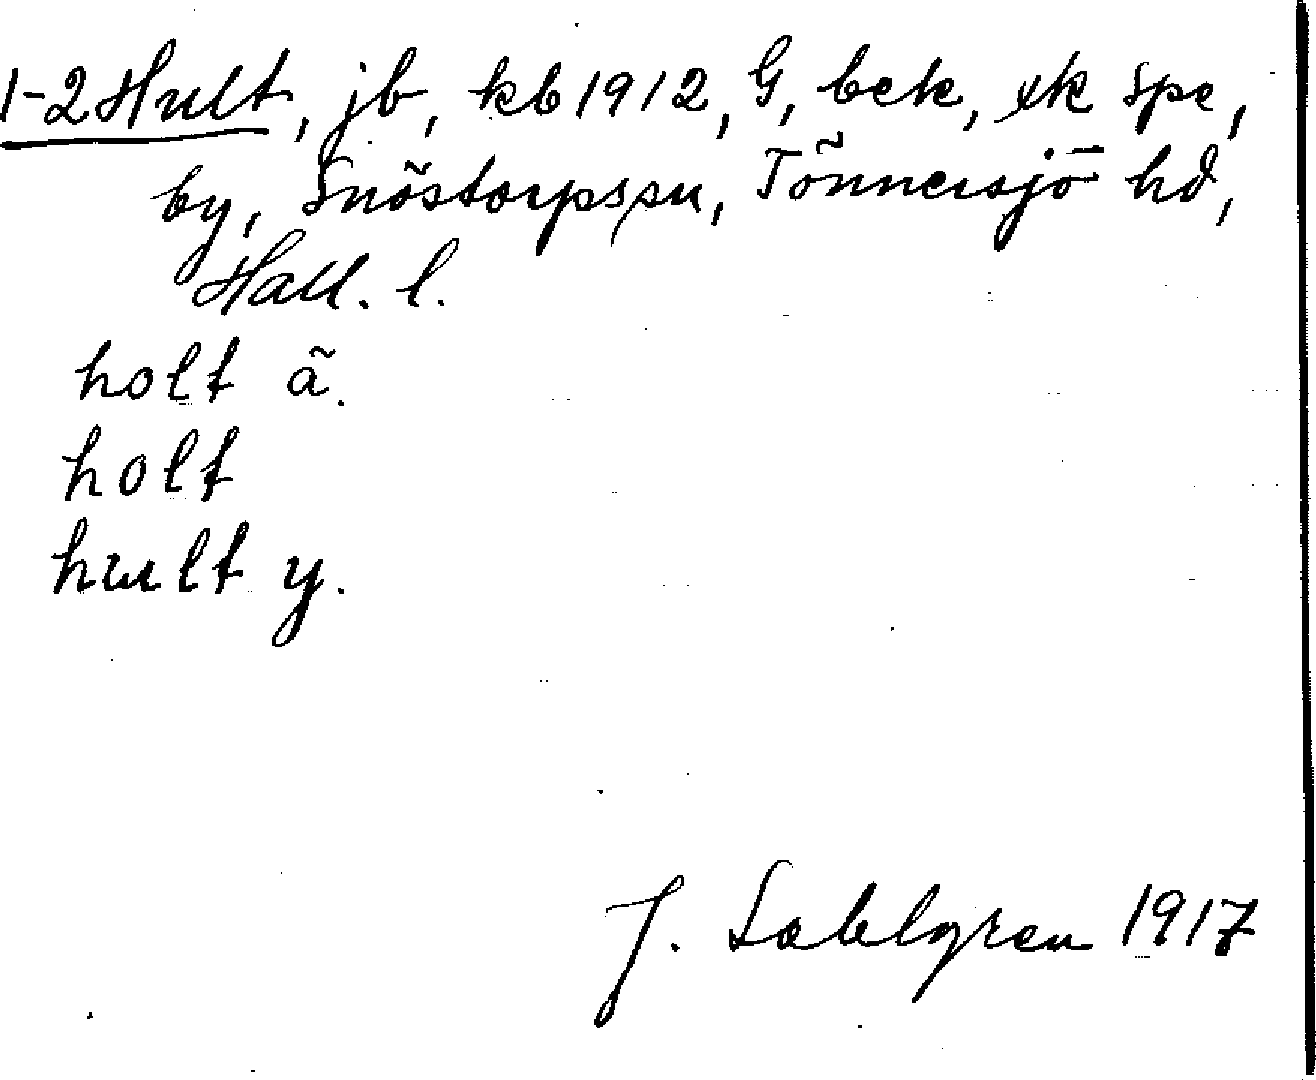 1-2 Hult, jb, kb 1912, G, bek, xk Spe,
by, Snöstorpssn, Tönnersjö hd,
Hall. l.
holt ä.
holt
hult y.
J. Sahlgren 1917